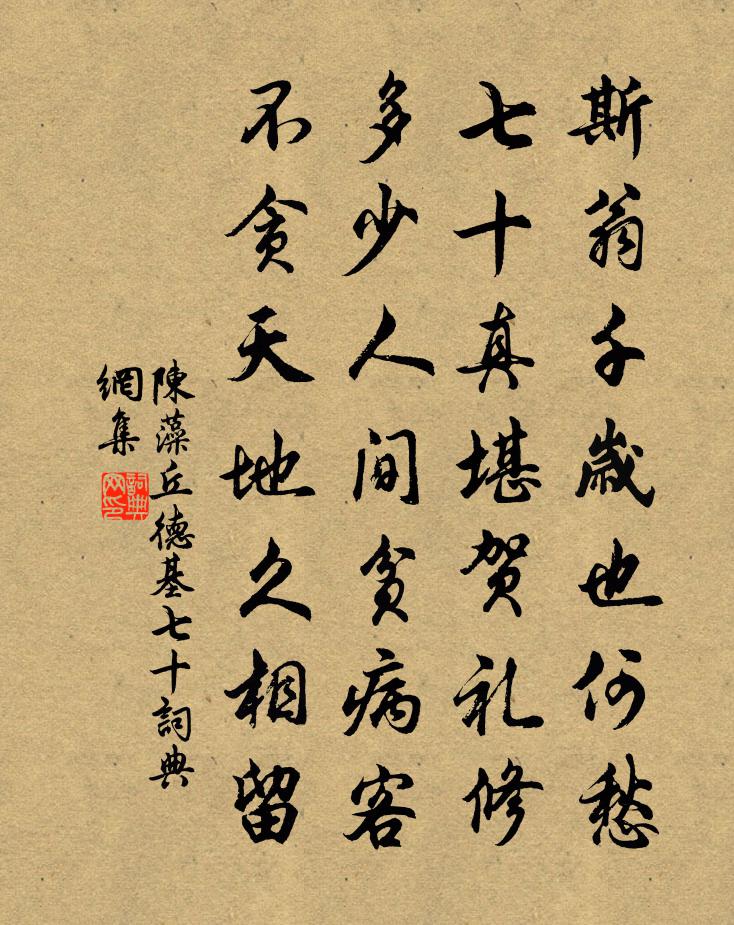 斯翁千歲也何愁
七十真堪贺礼修
多少人间贫病客
不贪天地久相留
陳藻丘德基七十詞典
網集
詞典網印